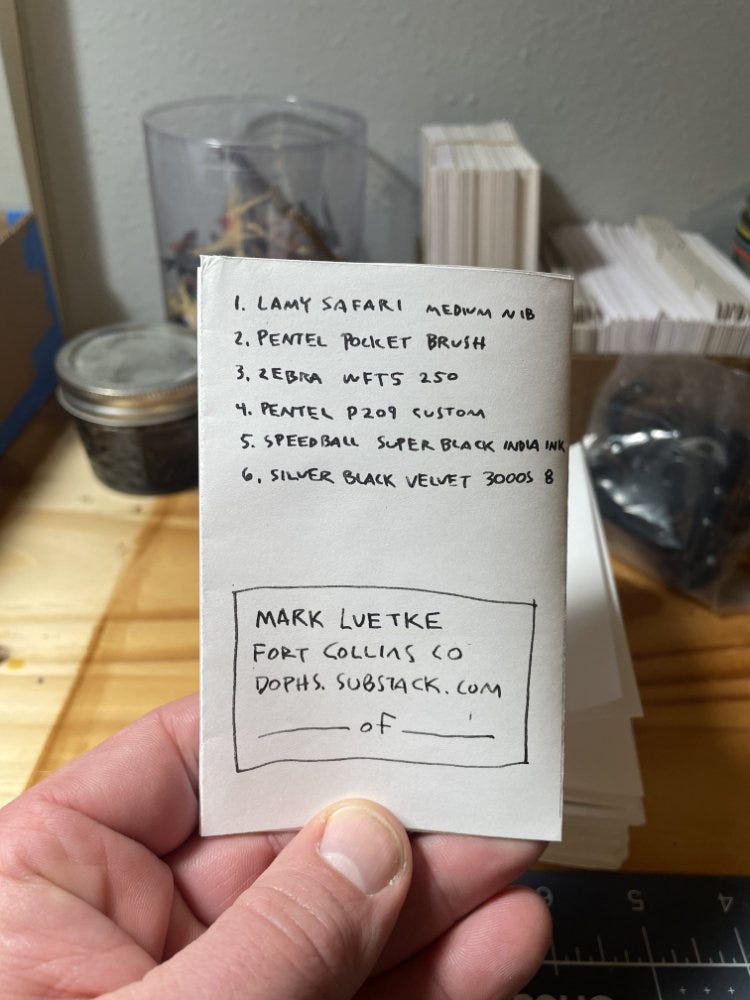 1. LAMY SAFARI MEDIUM NIB
2. PENTEL POCKET BRUSH
3. ZEBRA WFT5 250
4. PENTEL P209 CUSTOM
5. SPEEDBALL SUPER BLACK INDIA INK
6. SILVER BLACK VELVET 3000S 8
MARK LUETKE
FORT COLLINS CO
DOPHS.SUBSTACK.COM
____ of ____
6 5 4